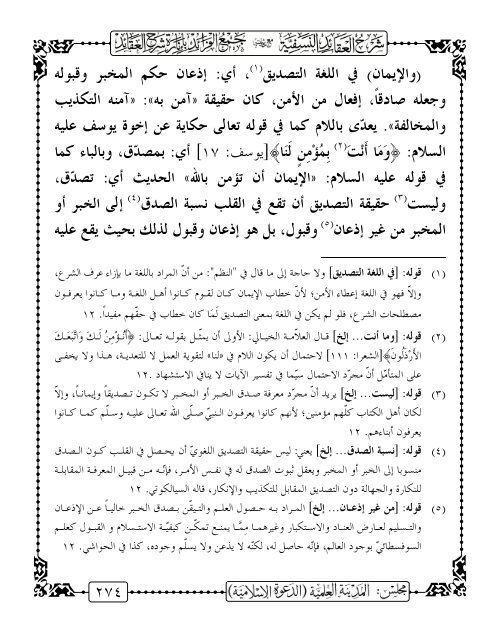 شرح العقائد النسفية مع حاشية جمع الفرائد بإنارة شرح العقائد
(والإيمان) في اللغة التصديق(١)، أي: إذعان حكم المخبر وقبوله
وجعله صادقاً، إفعال من الأمن، كان حقيقة «آمن به»: «آمنه التكذيب
والمخالفة». يعدّى باللام كما في قوله تعالى حكاية عن إخوة يوسف عليه
السلام: ﴿وَمَا أَنْتَ(٢) بِمُؤْمِنٍ لَنَا﴾[يوسف: ١٧] أي: بمصدّق، وبالباء كما
في قوله عليه السلام: «الإيمان أن تؤمن بالله» الحديث أي: تصدّق،
وليست(٣) حقيقة التصديق أن تقع في القلب نسبة الصدق(٤) إلى الخبر أو
المخبر من غير إذعان(٥) وقبول، بل هو إذعان وقبول لذلك بحيث يقع عليه
(١) قوله: [في اللغة التصديق] ولا حاجة إلى ما قال في "النظم": من أنّ المراد باللغة ما بإزاء عرف الشرع،
وإلاّ فهو في اللغة إعطاء الأمن؛ لأنّ خطاب الإيمان كان لقوم كانوا أهل اللغة وما كانوا يعرفون
مصطلحات الشرع، فلو لم يكن في اللغة بمعنى التصديق لَمَا كان خطاب في حقّهم مفيداً. ١٢
(٢) قوله: [وما أنت... إلخ] قال العلاّمة الخيالي: الأولى أن يمثّل بقوله تعالى: ﴿أَنُؤْمِنُ لَكَ وَاتَّبَعَكَ
الأَرْذَلُونَ﴾[الشعرا: ١١١] لاحتمال أن يكون اللام في «لنا» لتقوية العمل لا للتعدية، هذا ولا يخفى
على المتأمّل أنّ مجرّد الاحتمال سيّما في تفسير الآيات لا ينافي الاستشهاد. ١٢
(٣) قوله: [ليست... إلخ] يريد أنّ مجرّد معرفة صدق الخبر أو المخبر لا تكون تصديقاً وإيماناً، وإلاّ
لكان أهل الكتاب كلّهم مؤمنين؛ لأنهم كانوا يعرفون النبيّ صلّى الله تعالى عليه وسلّم كما كانوا
يعرفون أبناءهم. ١٢
(٤) قوله: [نسبة الصدق... إلخ] يعني: ليس حقيقة التصديق اللغويّ أن يحصل في القلب كون الصدق
منسوبا إلى الخبر أو المخبر ويعقل ثبوت الصدق له في نفس الأمر، فإنّه من قبيل المعرفة المقابلة
للنكارة والجهالة دون التصديق المقابل للتكذيب والإنكار، قاله السيالكوتي. ١٢
(٥) قوله: [من غير إذعان... إلخ] المراد به حصول العلم والتيقّن بصدق الخبر خالياً عن الإذعان
والتسليم لعارض العناد والاستكبار وغيرهما مِمَّا يمنع تمكّن كيفيّة الاستسلام و القبول كعلم
السوفسطائيّ بوجود العالم، فإنّه حاصل له، لكنّه لا يذعن ولا يسلّم وجوده، كذا في الحواشي. ١٢
مجلس: المدينة العلمية (الدعوة الإسلامية)
٢٧٤